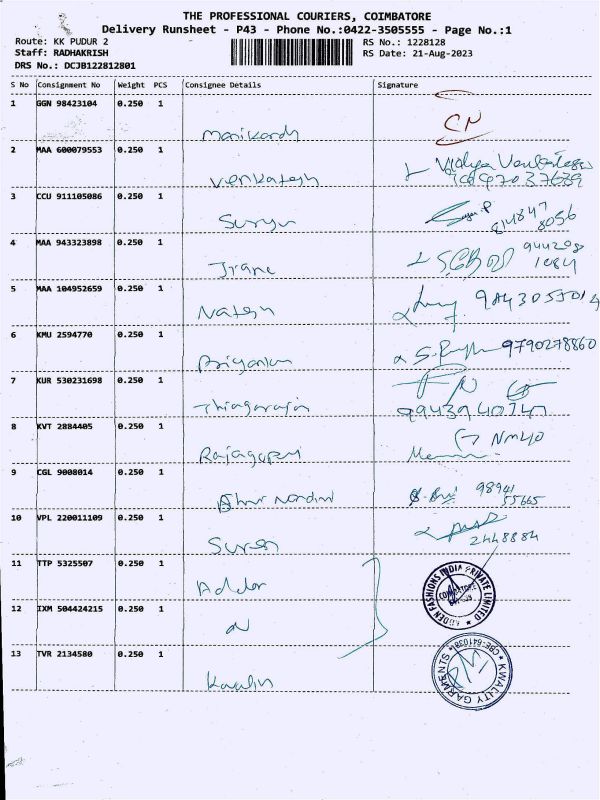 THE PROFESSIONAL COURIERS, COIMBATORE
Delivery Runsheet - P43 - Phone No.:0422-3505555 - Page No.:1
Route: KK PUDUR 2
RS No.: 1228128
Staff: RADHAKRISH
RS Date: 21-Aug-2023
DRS No.: DCJB122812801
S No Consignment No Weight PCS Consignee Details Signature
1 GGN 98423104 0.250 1
Manikandn CN
2 MAA 600079553 0.250 1
Venkatesh Vidya
3 CCU 911105086 0.250 1
Surya 814847
8056
4 MAA 943323898 0.250 1
944208
1084
5 MAA 104952659 0.250 1
Natesn
6 KMU 2594770 0.250 1
9790278860
7 KUR 530231698 0.250 1
Thiagaraja 9943940747
8 KVT 2884405 0.250 1
Rajagopal
9 CGL 9008014 0.250 1
98941
55665
10 VPL 220011109 0.250 1
Suren 2448884
11 TTP 5325507 0.250 1
12 IXM 504424215 0.250 1
FASHIONS INDIA PRIVATE LIMITED
COIMBATORE
13 TVR 2134580 0.250 1
KWALITY GARMENTS